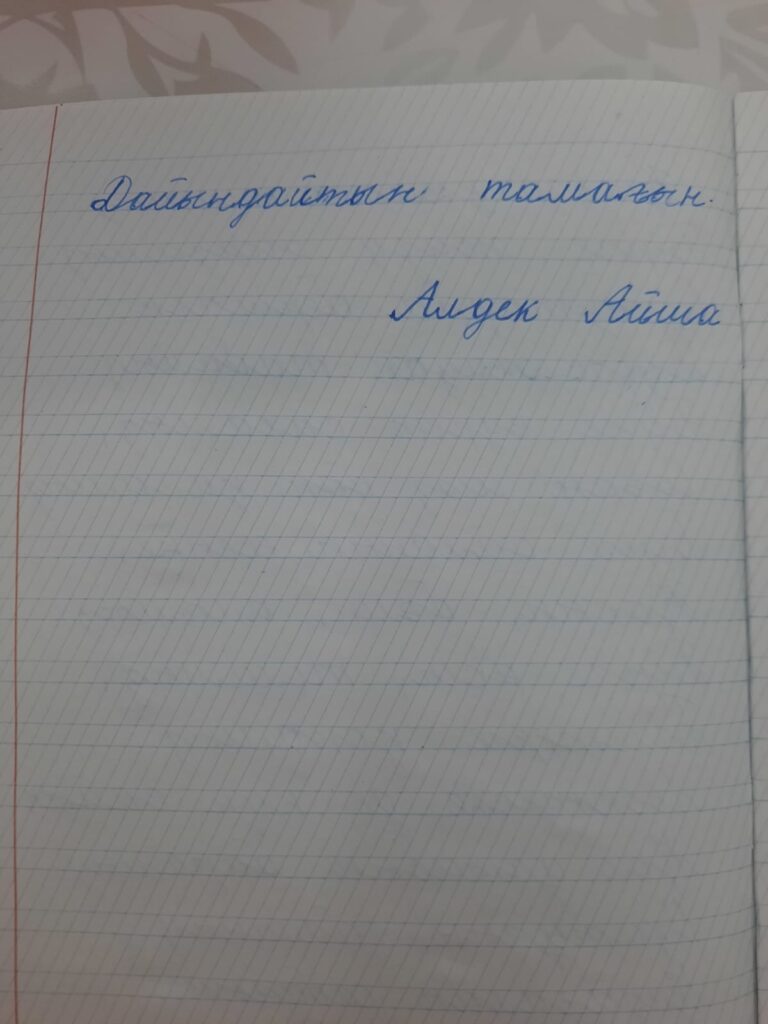 Дайындайтын тамағын.
Алдек Айша